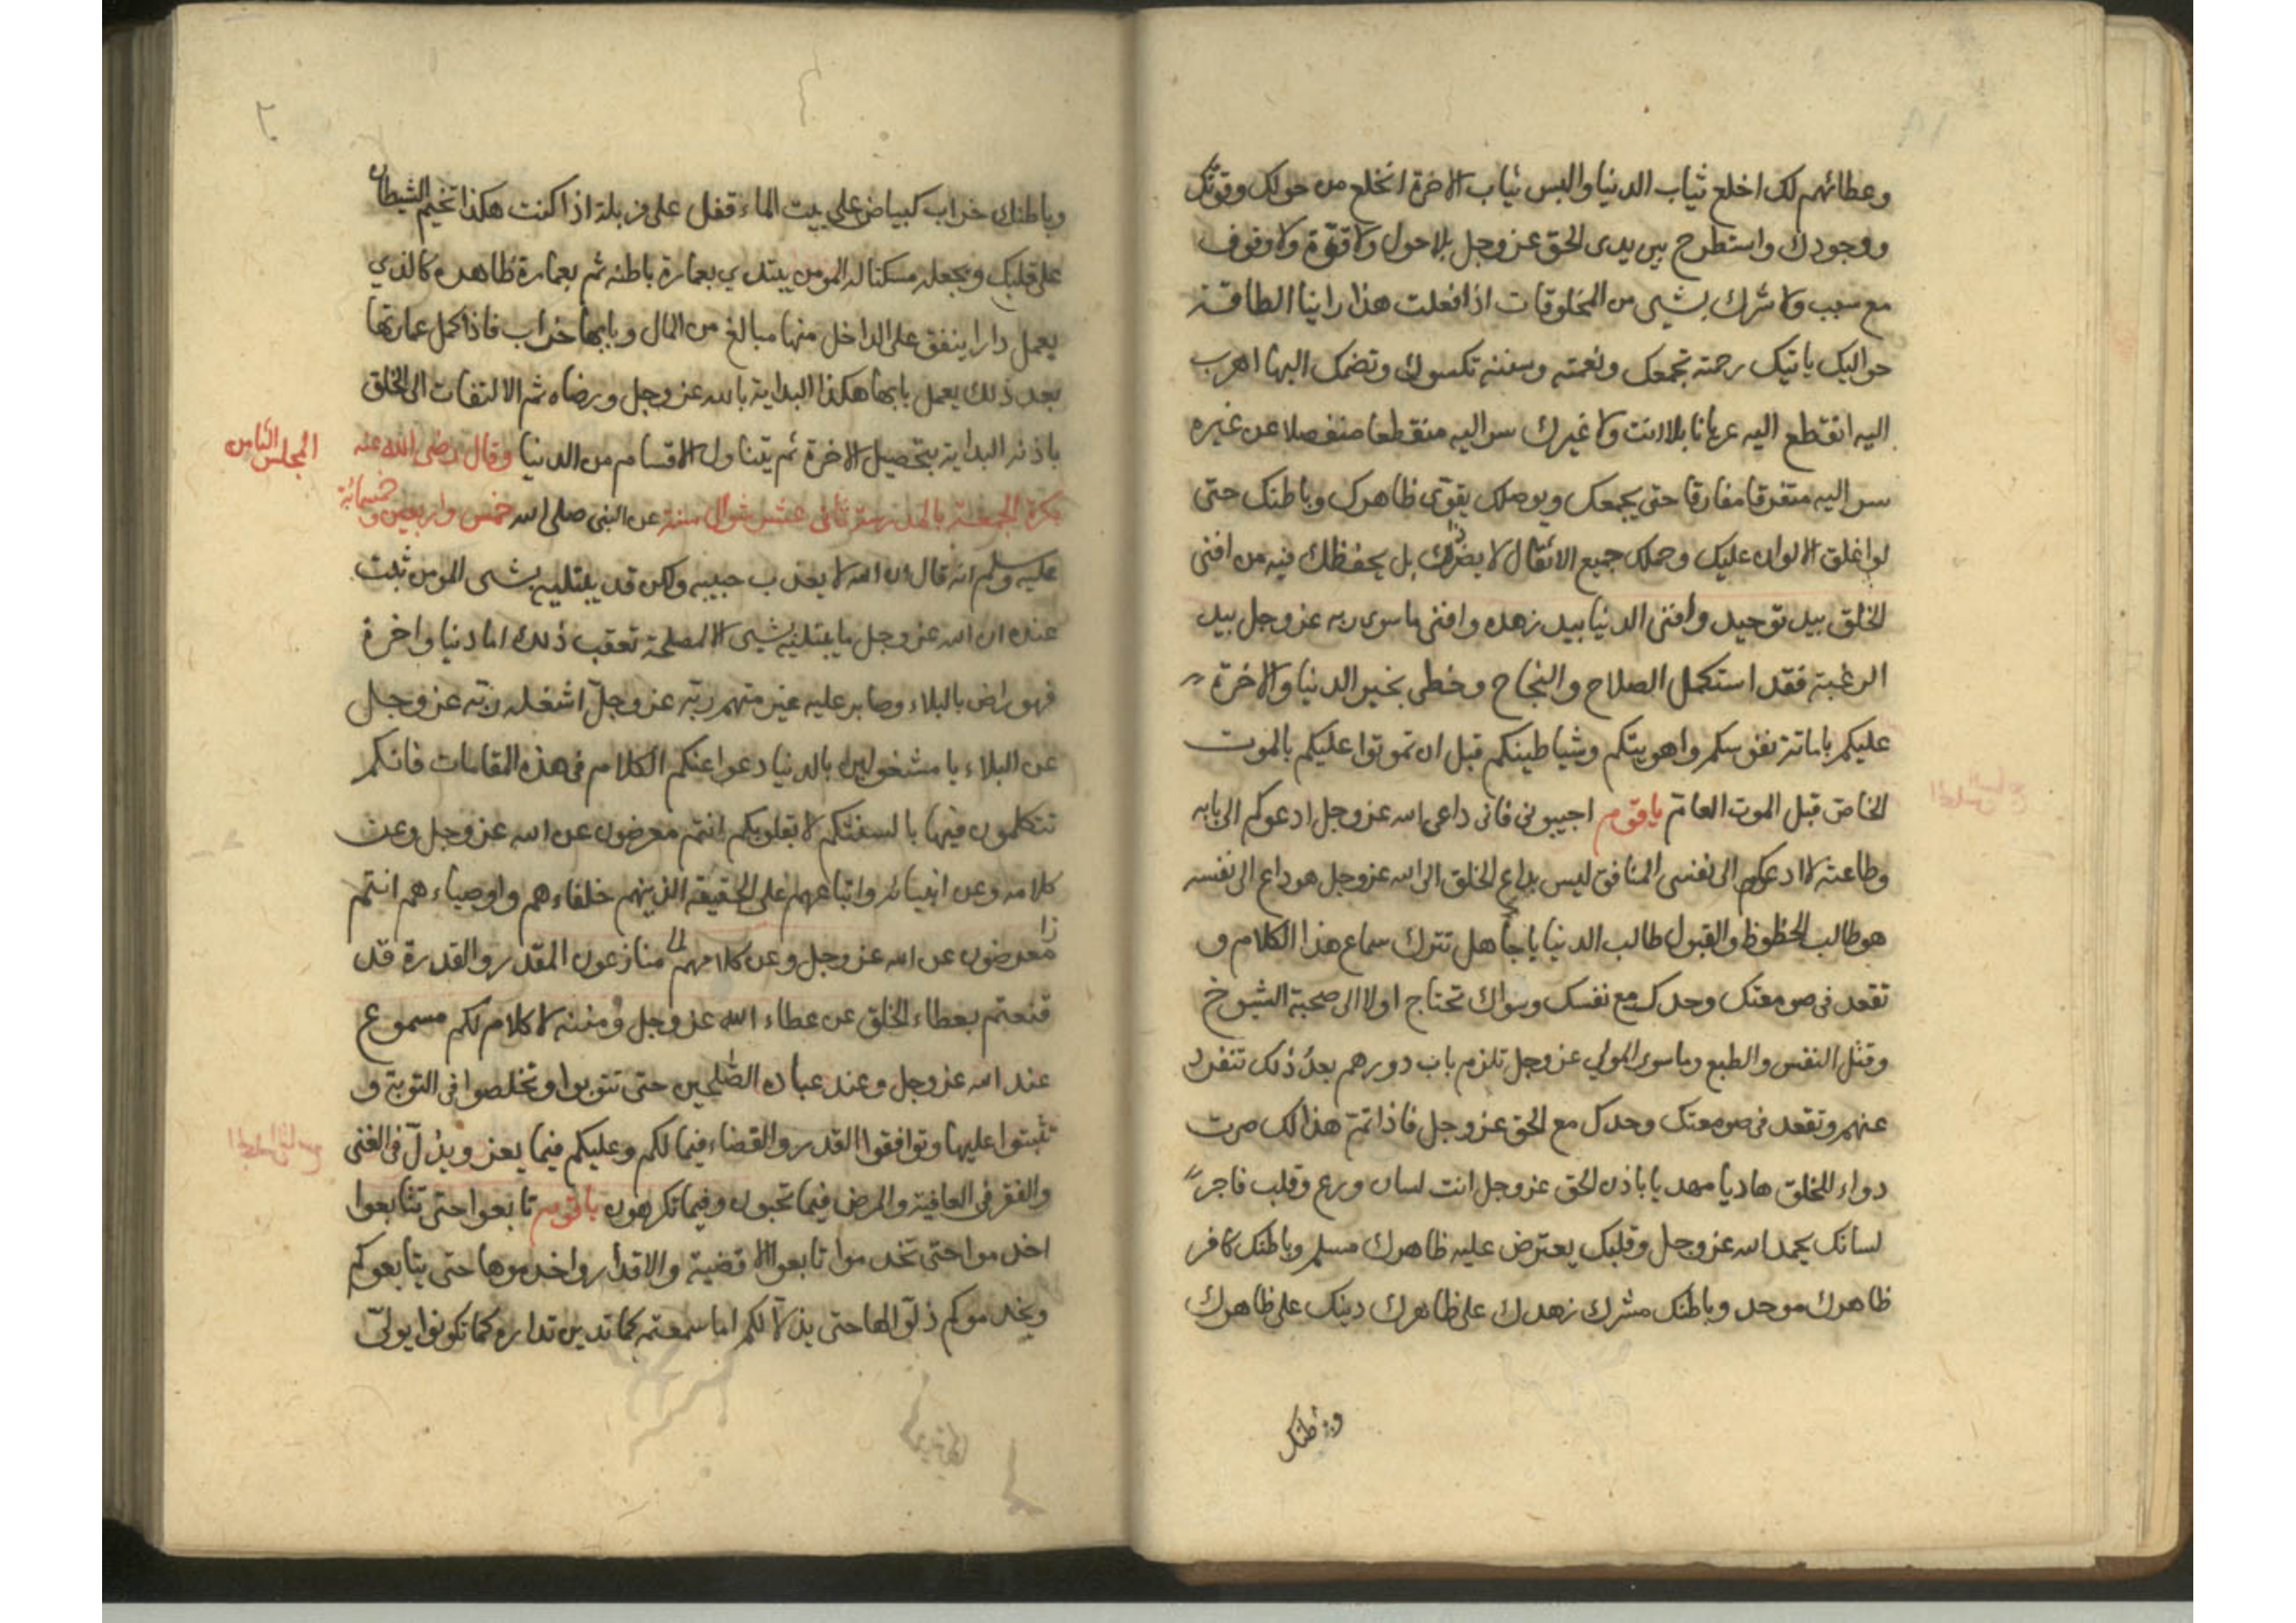 وعطائهم لك اخلع ثياب الدنيا والبس ثياب الاخرة انخلع من حولك وقوتك
ووجودك واستطرح بين يدى الحق عز وجل بلا حول ولا قوّة ولا وقوف
مع سبب ولا شرك بشىء من المخلوقات اذا فعلت هذا راينا الطافه
حواليك ياتيك رحمته تجمعك ونعمته ومننه تكسوك وتضمك اليها اهرب
اليه انقطع اليه عريانا بلا انت ولا غيرك سر اليه منقطعا منفصلا عن غيره
سر اليه متفرقا مفارقا حتى يجمعك ويوصلك يقوّى ظاهرك وباطنك حتى
لو اغلق الاكوان عليك وحملك جميع الاثقال لا يضرك ذا بل يحفظك فيه من افنى
الخلق بيد توحيد وافنى الدنيا بيد زهده وافنى ما سوى ربه عز وجل بيد
الرغبة فقد استكمل الصلاح والنجاح وحظى بخير الدنيا والاخرة
عليكم باماتة نفوسكم واهويتكم وشياطينكم قبل ان تموتوا عليكم بالموت
الخاص قبل الموت العام يا قوم اجيبونى فانى داعى الله عز وجل ادعوكم الى بابه
وطاعته لا ادعوكم الى نفسى المنافق ليس يداع الخلق الى الله عز وجل هو داع الى نفسه
هو طالب الحظوظ والقبول طالب الدنيا يا جاهل تترك سماع هذا الكلام و
تقعد فى صومعتك وحدك مع نفسك وسواك تحتاج اولا الى صحبة الشيوخ
وقتل النفس والطبع وما سوى المولى عز وجل تلزم باب دورهم بعد ذلك تنفرد
عنهم وتقعد فى صومعتك وحدك مع الحق عز وجل فاذا تم هذا لك صرت
دواء للخلق هاديا مهديا باذن الحق عز وجل انت لسان ورع وقلب فاجر
لسانك يحمد الله عز وجل وقلبك يعترض عليه ظاهرك مسلم وباطنك كافر
ظاهرك موحد وباطنك مشرك زهدك على ظاهرك دينك على ظاهرك
وباطنك
وباطنك خراب كبياض على بيت الماء قفل على مزبلة اذا كنت هكذا تخيم الشيطان
على قلبك ويجعله مسكنا له المومن يبتدي بعمارة باطنه ثم بعمارة ظاهره كالذي
يعمل دارا ينفق على الداخل منها مبالغ من المال وبابها خراب فاذا كمل عمارتها
بعد ذلك يعمل بابها هكذا البداية بالله عز وجل ورضاه ثم الالتفات الى الخلق
باذنه البداية بتحصيل الاخرة ثم يتناول الاقسام من الدنيا وقال رضى الله عنه
المجلس الثامن
بكرة الجمعة بالمدرسة ثانى عشر شوال سنة خمس واربعين وخمسمائة عن النبى صلى الله
عليه وسلم انه قال ان الله لا يعذب حبيبه ولكن قد يبتليه بشىء المومن ثبت
عنده ان الله عز وجل ما يبتليه بشىء الا لمصلحة تعقب ذلك اما دنيا واخرة
فهو راض بالبلاء وصابر عليه غير متهم ربه عز وجل اشغله ربه عز وجل
عن البلاء يا مشغولين بالدنيا دعوا عنكم الكلام فى هذه المقامات فانكم
تتكلمون فيها بالسنتكم لا بقلوبكم انتم معرضون عن الله عز وجل وعن
كلامه وعن انبيائه واتباعهم على الحقيقة الذينهم خلفاءهم واوصياءهم انتم
معرضون عن الله عز وجل وعن كلامهم منازعون المقدر والقدرة قد
قنعتم بعطاء الخلق عن عطاء الله عز وجل ومننه لا كلام لكم مسموع
عند الله عز وجل وعند عباده الصلحين حتى تتوبوا وتخلصوا فى التوبة و
تثبتوا عليها وتوافقوا القدر والقضاء فيما لكم وعليكم فيما يعز ويذل فى الغنى
والفقر فى العافية والمرض فيما تحبون وفيما تكرهون يا قوم تابعوا حتى تتابعوا
اخدموا حتى تخدموا تابعوا الاقضية والاقدار واخدموها حتى يتابعوكم
ويخدموكم ذلوا لها حتى يذلا لكم اما سمعتم كما تدين تدان كما تكونوا يولى